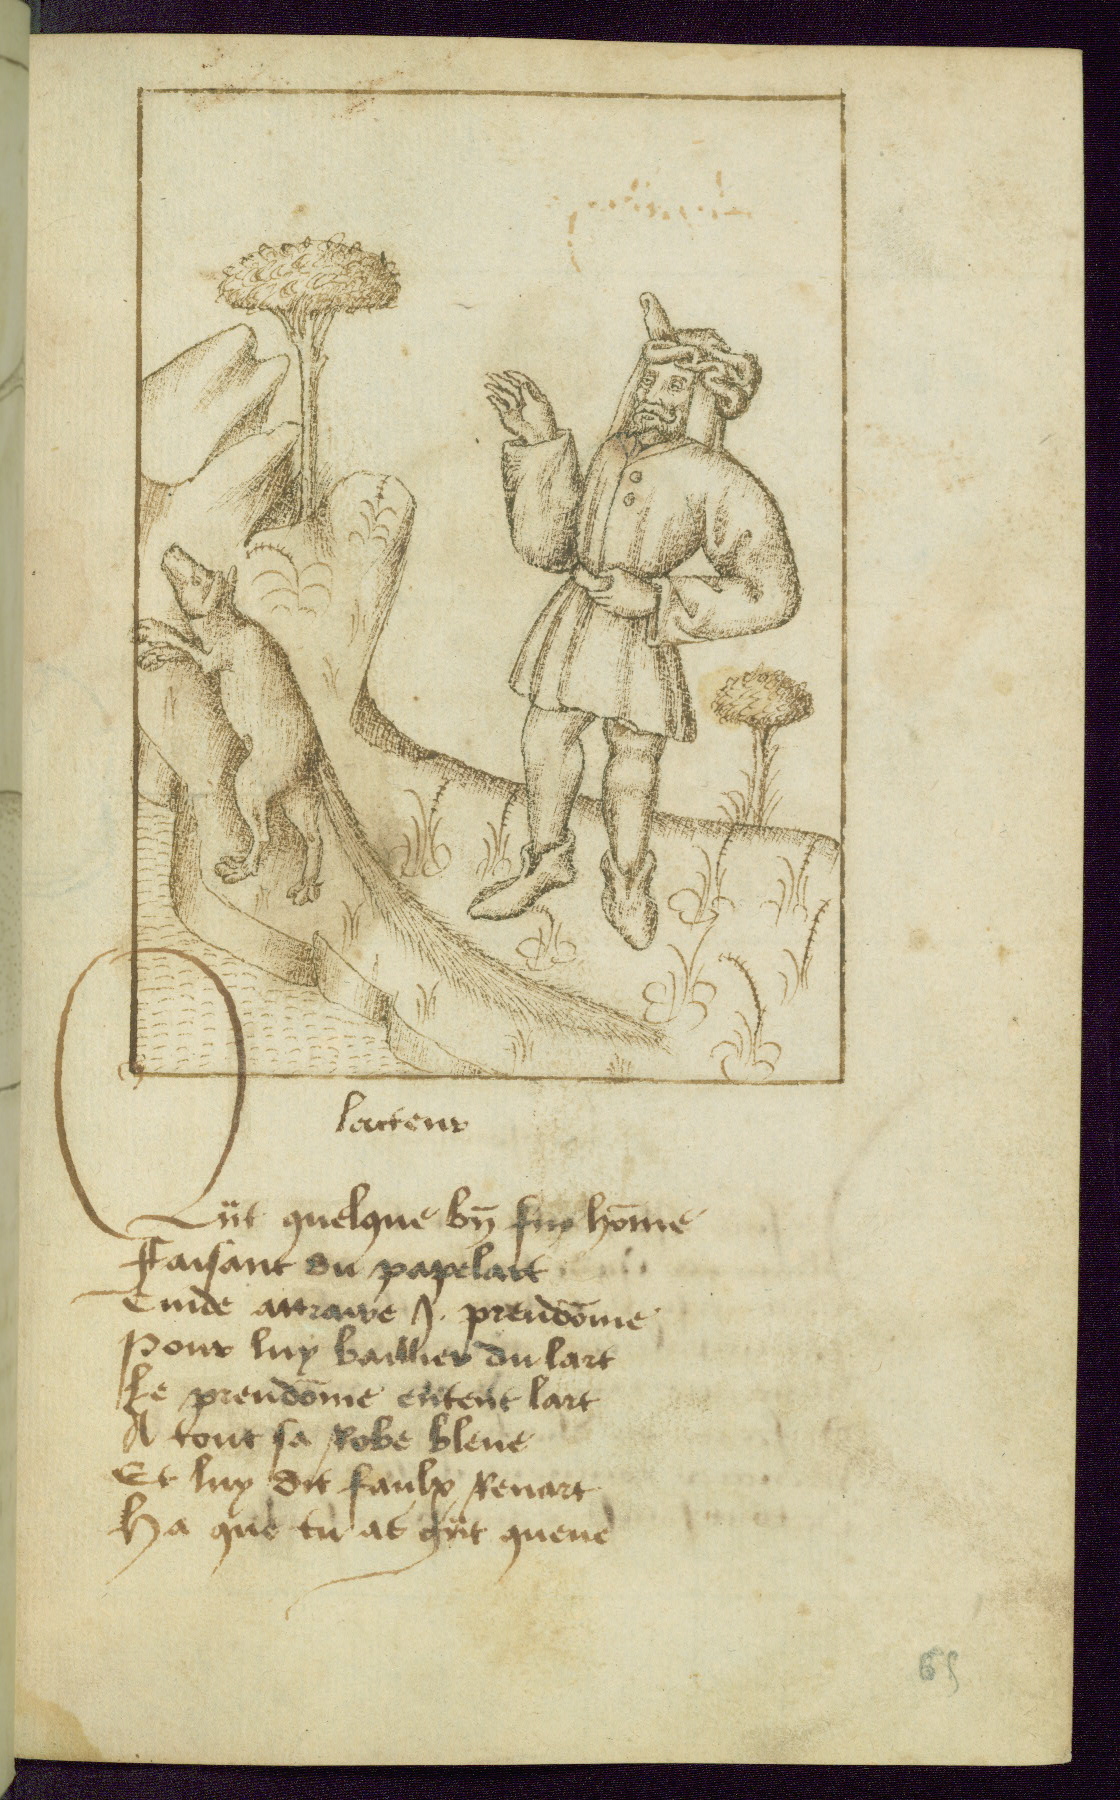 lacteur
Qũt quelque bñ fin hõme
Faisant du papelart
Cuide attraire .j. preudõme
Pour luy baillier du lart
Le preudõme entent lart
A tout sa robe bleue
Et luy dit faulx Renart
Ha que tu as gñt queue
65